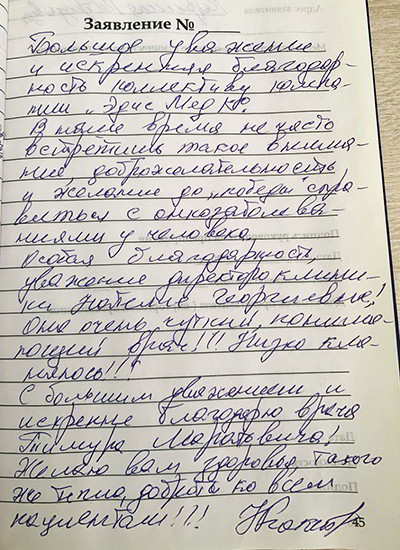 Заявление №
Большое уважение
и искренняя благодар-
ность коллективу компа-
нии "Эдис Мед Ко".
В наше время не часто
встретишь такое внима-
ние, доброжелательность
и желание до "победы" спра-
виться с
у человека.
Особая благодарность,
уважение директору клини-
ки Наталие Георгиевне!
Она очень чуткий, понима-
ющий врач!!! Низко кла-
няюсь!!!
С большим уважением и
искренне благодарю врача
Тимура Маратовича!
Желаю вам здоровья, такого
же типа, доброты ко всем
пациентам!!!
45